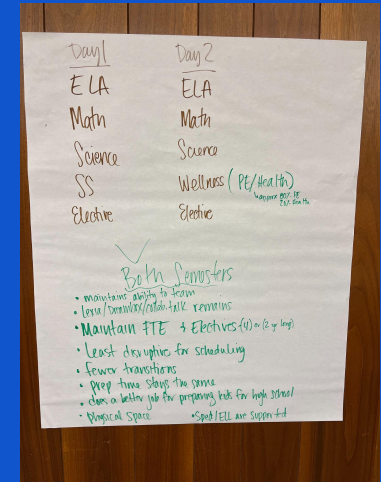 Day 1 Day 2
ELA ELA
Math Math
Science Science
SS Wellness (PE/Health)
↳ approx 75% PE
25% Health
Elective Elective
Both Semesters
• maintains ability to team
• Lexia/Dreambox/collab. talk remains
• Maintain FTE & Electives (4) or (2 yr long)
• Least disruptive for scheduling
• fewer transitions
• prep time stays the same
• does a better job for preparing kids for high school
• physical space • Sped/ELL are supported